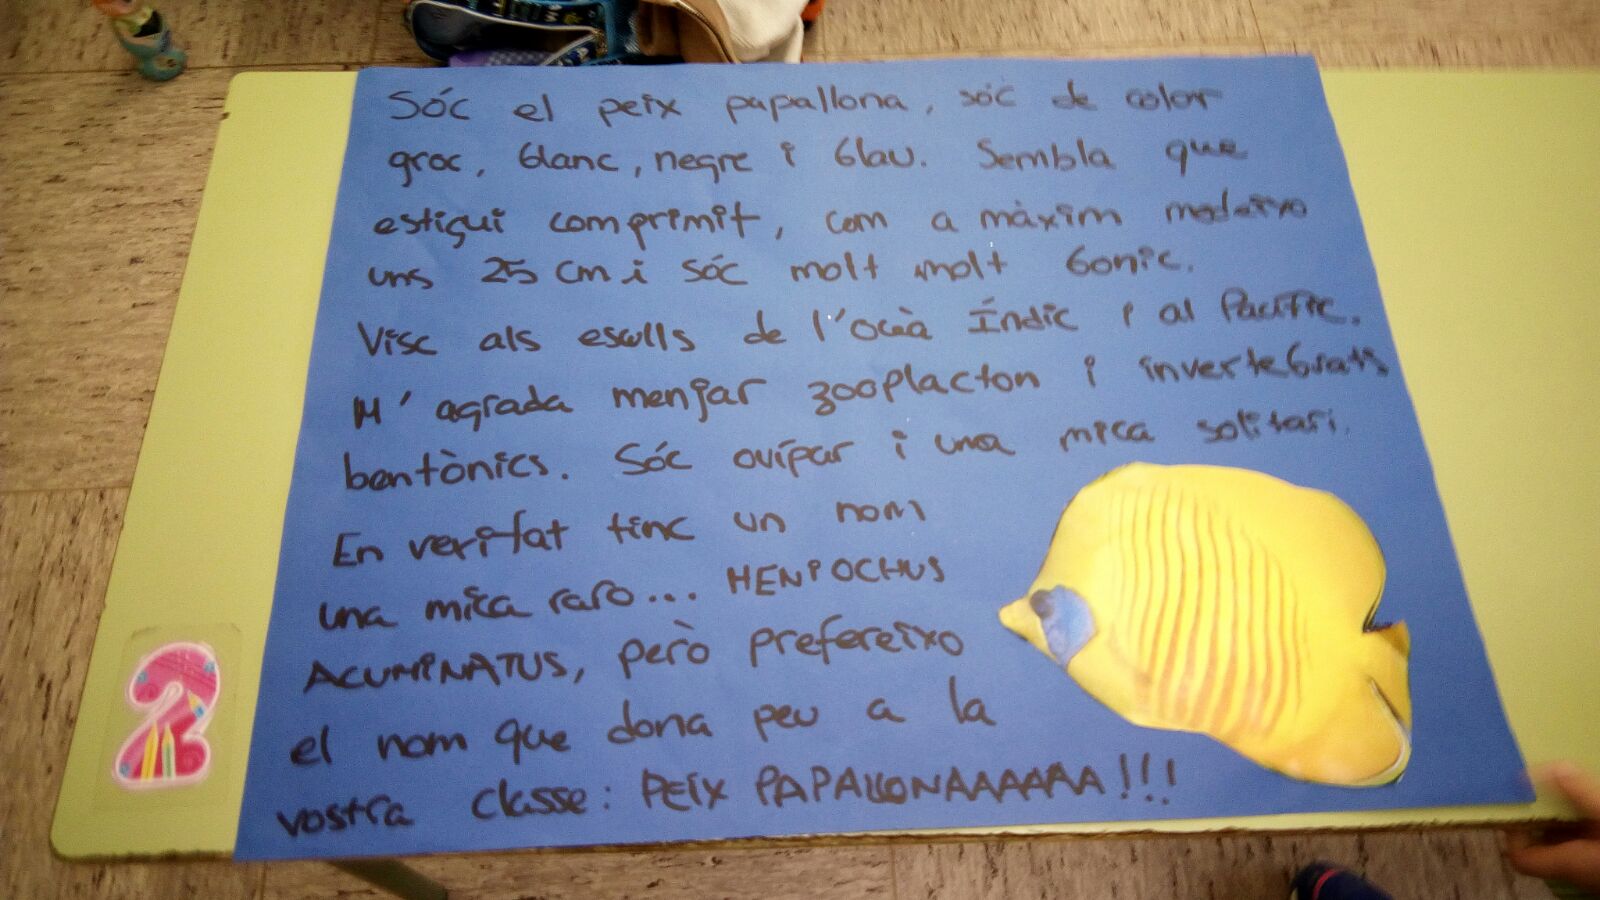 Sóc el peix papallona, sóc de color
groc, blanc, negre i blau. Sembla que
estigui comprimit, com a màxim medeixo
uns 25 cm i sóc molt molt bonic.
Visc als esculls de l'oceà Índic i al Pacífic.
M'agrada menjar zooplacton i invertebrats
bentònics. Sóc ovípar i una mica solitari.
En veritat tinc un nom
una mica raro... HENIOCHUS
ACUMINATUS, però prefereixo
el nom que dona peu a la
vostra classe: PEIX PAPALLONAAAAAA!!!
2